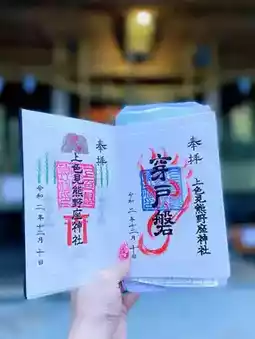 奉拝
上色見熊野座神社
令和二年十二月十日
奉拝
上色見熊野座神社
穿戸磐
令和二年十二月十日